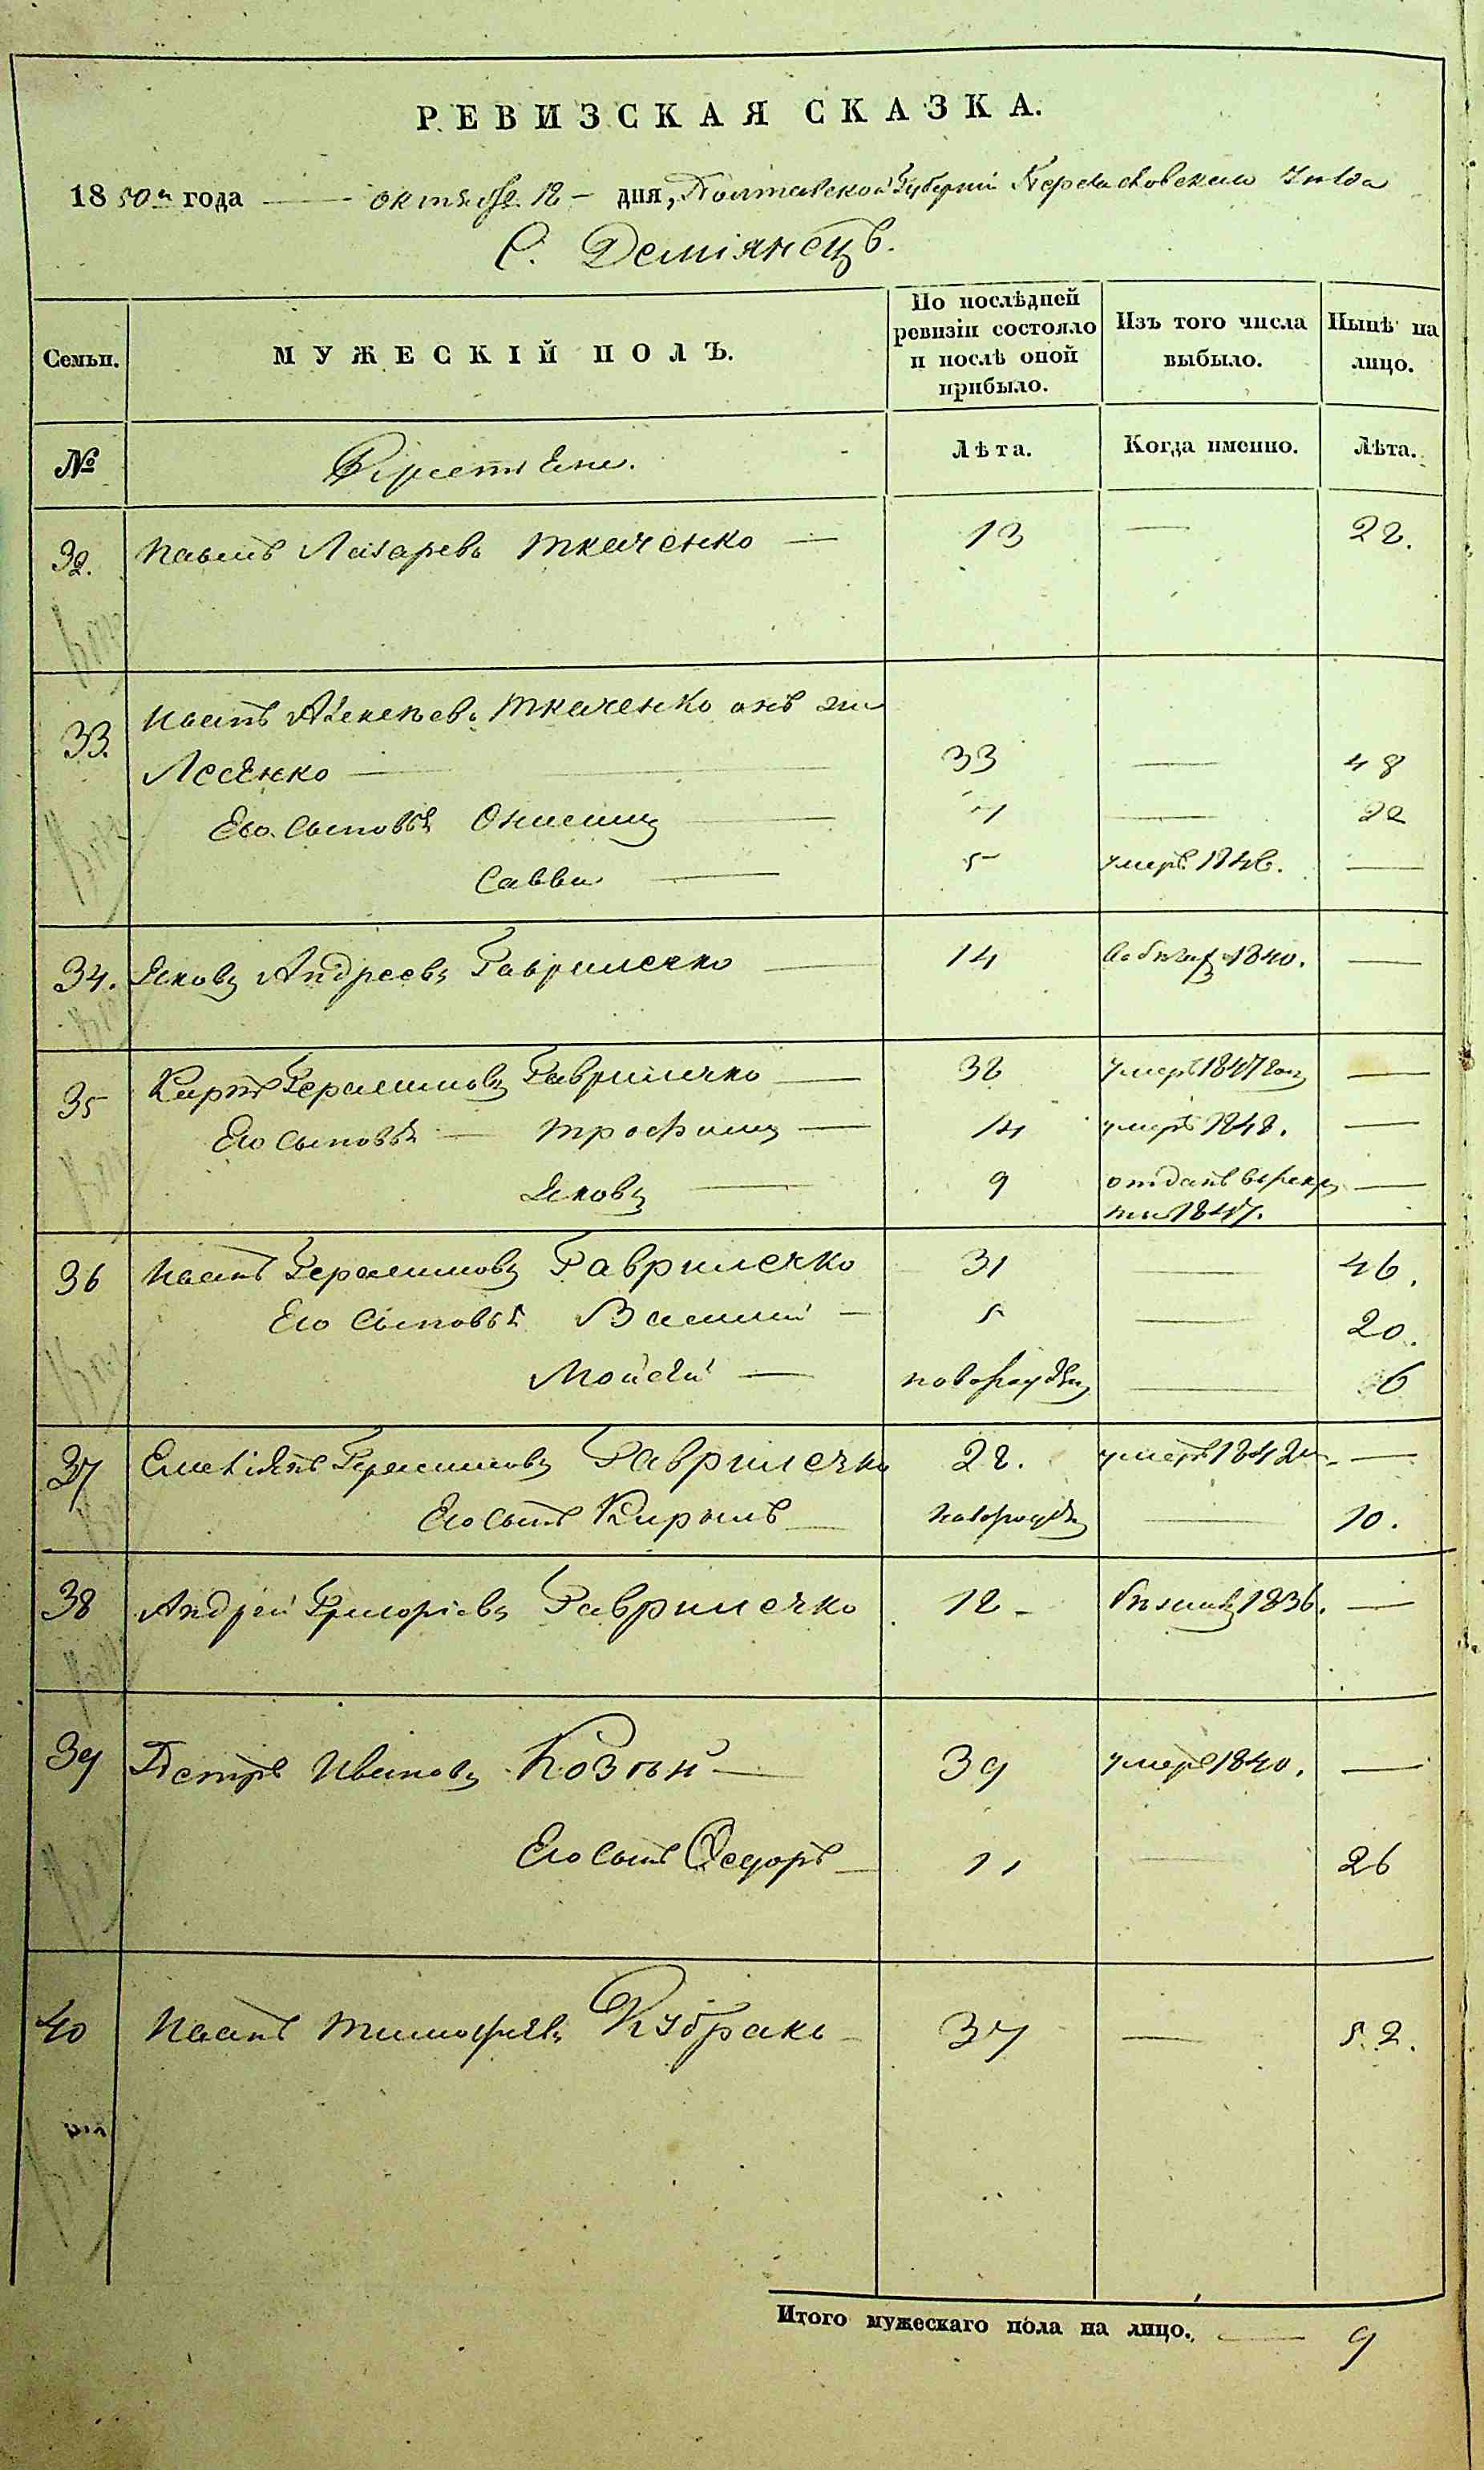 РЕВИЗСКАЯ СКАЗКА.
1850 года — октября 12 — дня, Полтавской Губернии Переяславскаго Уезда
С. Деміянецъ.
Семьи. МУЖЕСКІЙ ПОЛЪ. По послѣдней ревизіи состояло и послѣ оной прибыло. Изъ того числа выбыло. Нынѣ на лицо.
№ Крестьяне. Лѣта. Когда именно. Лѣта.
32. Павелъ Лазаревъ Ткаченко — 13 — 28.
33. Иванъ Алексѣевъ Ткаченко онъ же
Лесенко — 33 — 48
Его сыновья Онисимъ — 7 — 22
Савва — 5 умеръ 1846. —
34. Яковъ Андреевъ Гавриленко — 14 1840. —
35 Карпъ Герасимовъ Гавриленко — 38 умеръ 1847 —
Его сыновья — Трофимъ — 14 умеръ 1848. —
Яковъ — 9 отданъ въ рекру —
ты 1847.
36 Иванъ Герасимовъ Гавриленко 31 — 46.
Его сыновья Василий — 5 — 20.
Мойсей — новорожден — 6
37 Емельянъ Герасимовъ Гавриленко 28. умеръ 1842 —
Его сынъ Кирылъ — новорожден — 10.
38 Андрей Григоріевъ Гавриленко 12 — 1836. —
39 Петръ Ивановъ Козый — 39 умеръ 1840. —
Его сынъ Ѳедоръ — 11 — 26
40 Иванъ Тимофѣевъ Кубракъ — 37 — 52.
Итого мужескаго пола на лицо. — 9